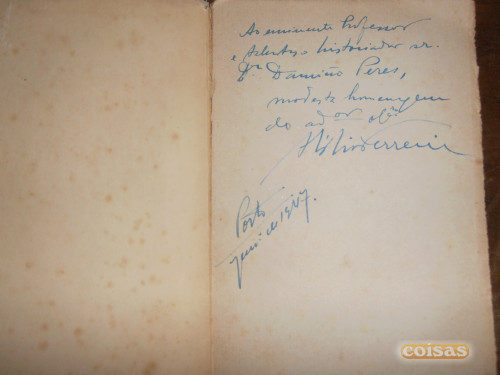 Ao eminente Professor
e talentoso historiador sr.
Dr. Damião Peres,
modesta homenagem
do ador obr.
Ferreira
Porto
de 19
coisas